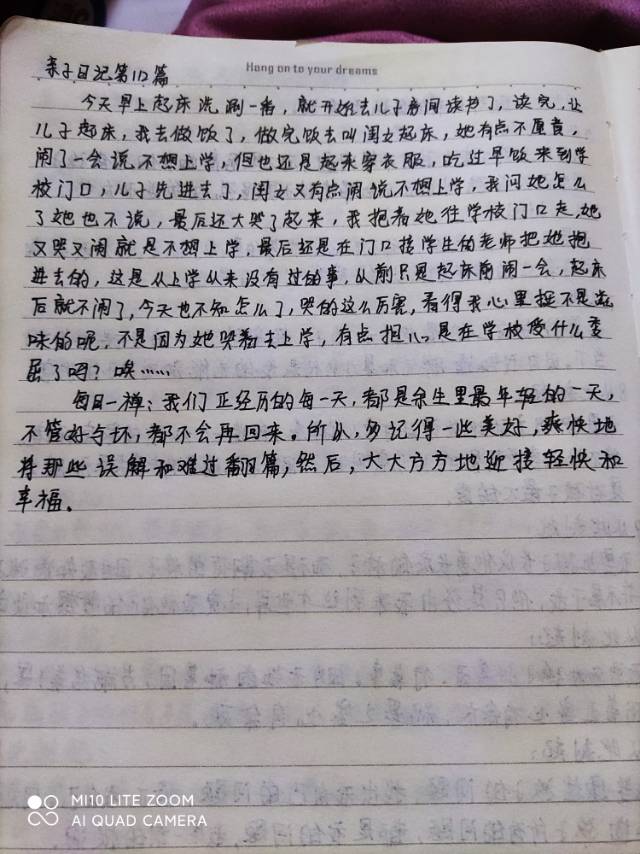 亲子日记第112篇
Hang on to your dreams
今天早上起床洗涮一番，就开始去儿子房间读书了，读完，让
儿子起床，我去做饭了，做完饭去叫闺女起床，她有点不愿意，
闹了一会说不想上学，但也还是起来穿衣服，吃过早饭来到学
校门口，儿子先进去了，闺女又有点闹说不想上学，我问她怎么
了她也不说，最后还大哭了起来，我抱着她往学校门口走，她
又哭又闹就是不想上学，最后还是在门口接学生的老师把她抱
进去的，这是从上学从来没有过的事，从前只是起床前闹一会，起床
后就不闹了，今天也不知怎么了，哭的这么厉害，看得我心里挺不是滋
味的呢，不是因为她哭着去上学，有点担心是在学校受什么委
屈了吗？唉……
每日一禅：我们正经历的每一天，都是余生里最年轻的一天，
不管好与坏，都不会再回来。所以，多记得一些美好，爽快地
将那些误解和难过翻篇，然后，大大方方地迎接轻快和
幸福。
MI10 LITE ZOOM
AI QUAD CAMERA